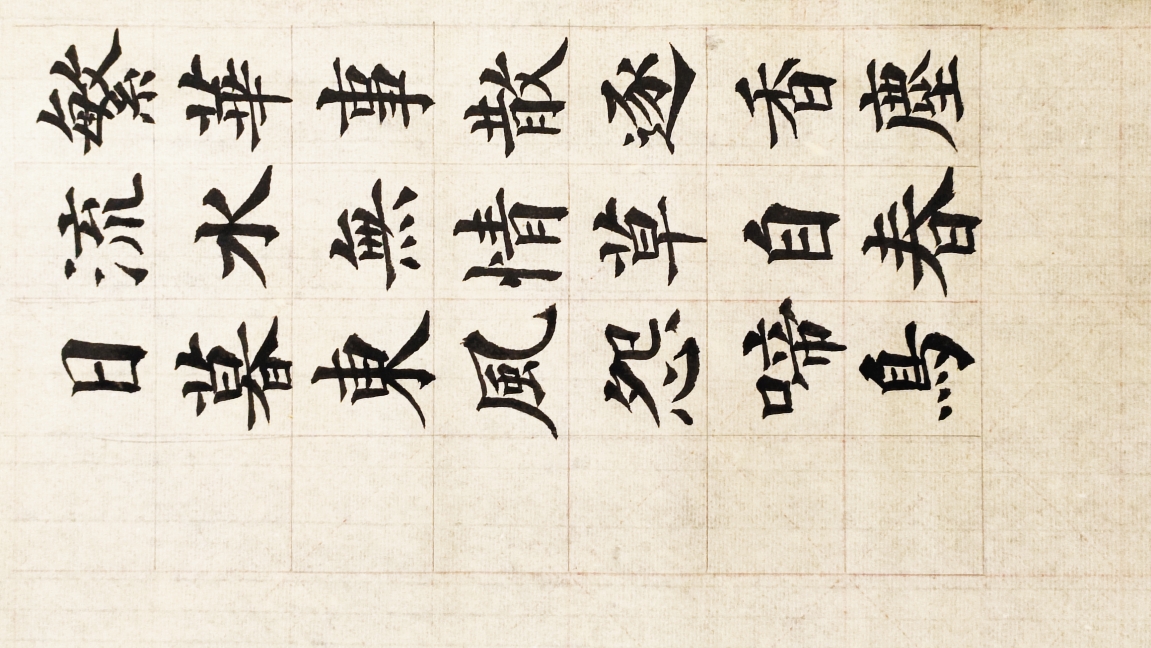 繁華事散逐香塵
流水無情草自春
日暮東風怨啼鳥